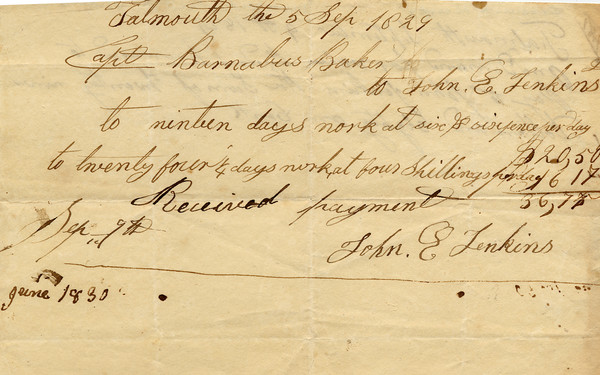 Falmouth the 5 Sep 1829
Capt Barnabus Baker
to John. E. Jenkins
to ninteen days work at six & sixpence per day
$20,50
to twenty four 1/4 days work at four Shillings per day 16 17
Received payment 36,72
Sep 9th
John. E Jenkins
June 1830